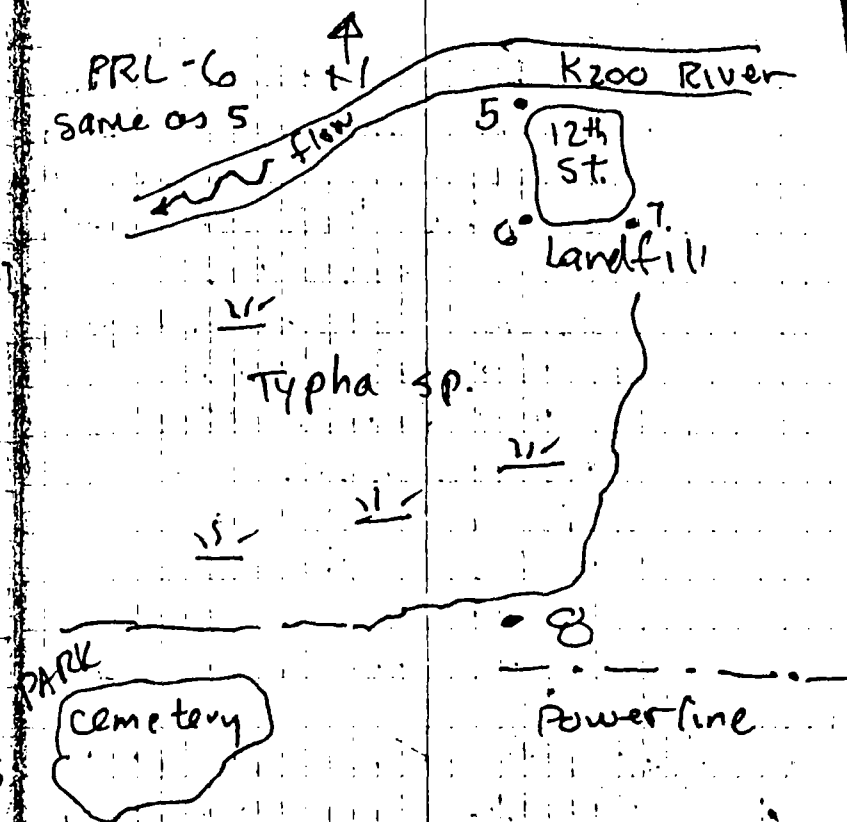 PRL-6
same as 5
N
K200 River
flow
5
12th
St.
6
7.
Landfill
Typha sp.
8
PARK
Cemetery
Powerline